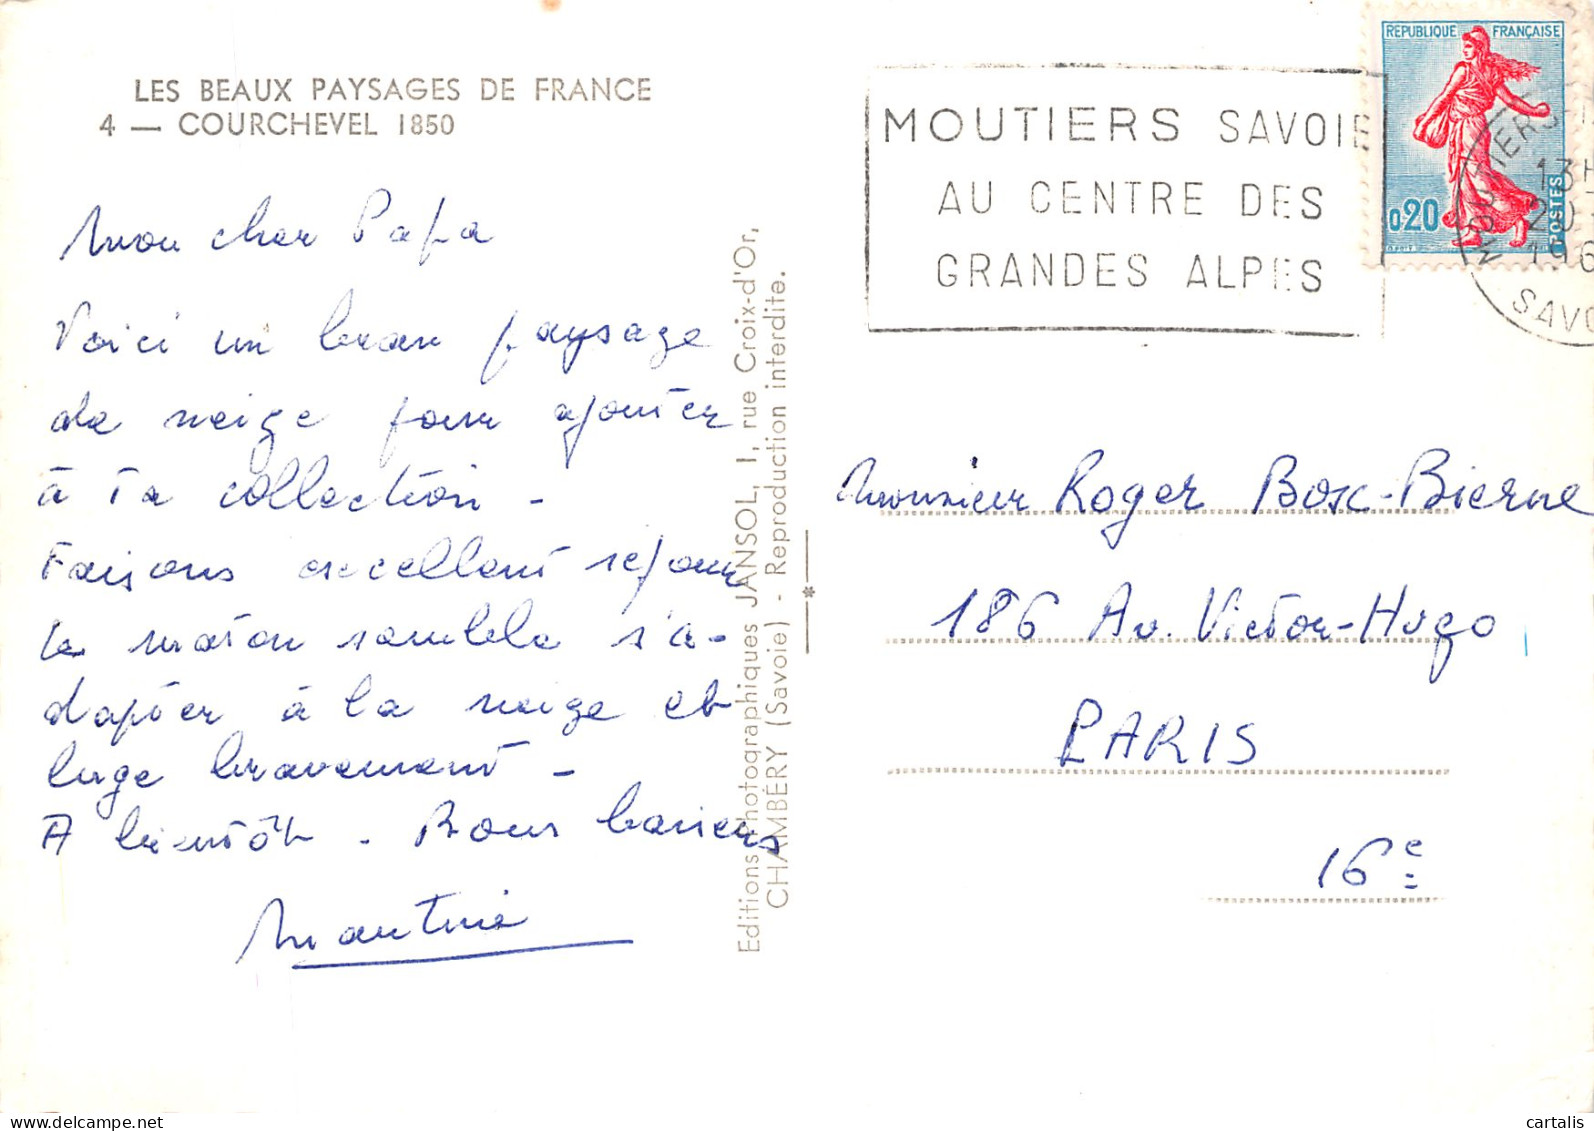 LES BEAUX PAYSAGES DE FRANCE
4 — COURCHEVEL 1850
Mon cher Papa
Voici un beau paysage
de neige pour ajouter
à ta collection -
Faisons excellent séjour
Le maton semble s'a-
dapter à la neige et
luge bravement -
A bientôt - Bons baisers
Martine
Editions Photographiques JANSOL, 1, rue Croix-d'Or,
CHAMBÉRY (Savoie) - Reproduction interdite.
MOUTIERS SAVOIE
AU CENTRE DES
GRANDES ALPES
REPUBLIQUE FRANÇAISE
0,20
POSTES
MOUTIERS
13H
20
196
SAVO
Monsieur Roger Bosc-Bierne
186 Av. Victor-Hugo
PARIS
16e
cartalis
delcampe.net